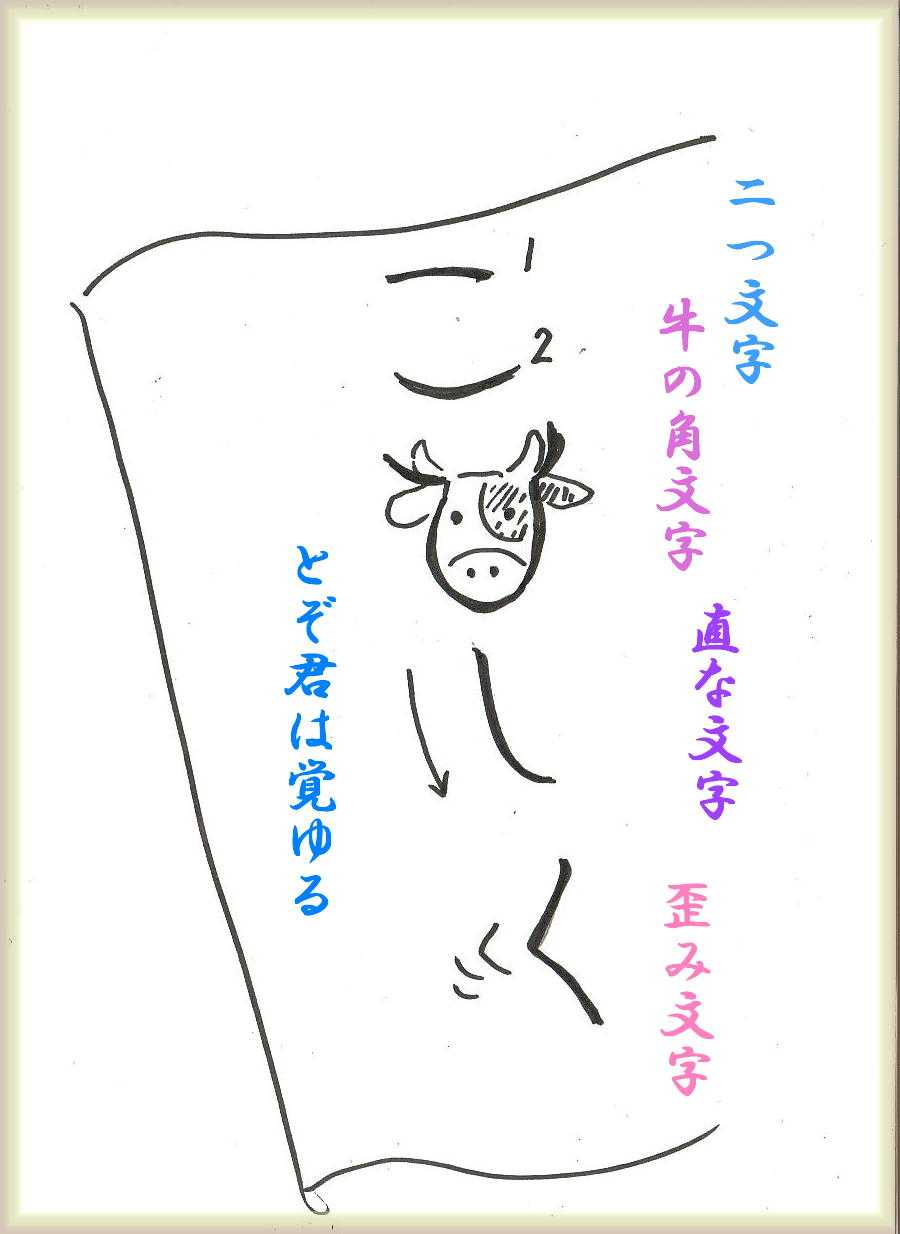 二つ文字
牛の角文字
直な文字
歪み文字
1
2
とぞ君は覚ゆる